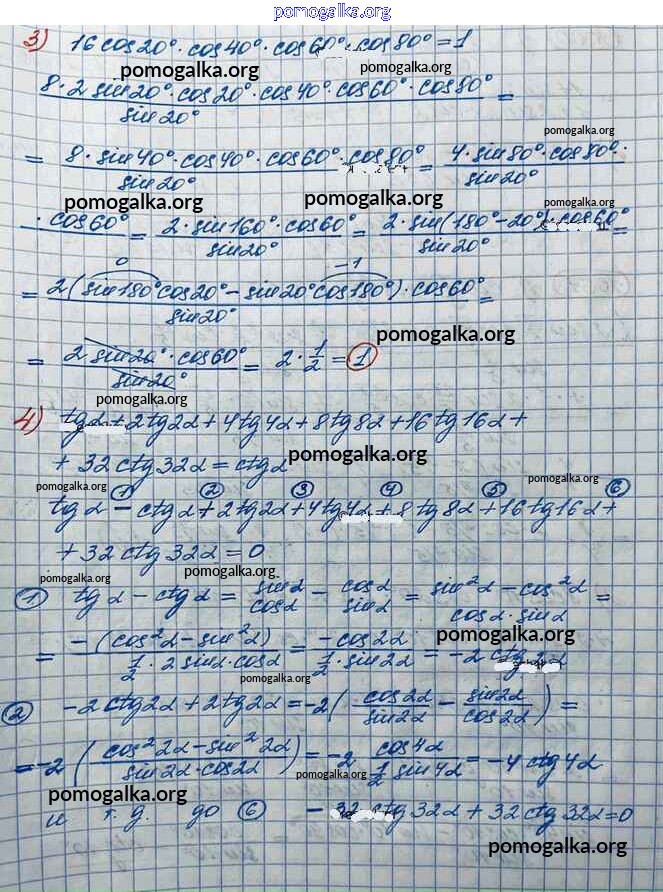 pomogalka.org
3) 16 cos20°·cos40°·cos60°·cos80°=1
pomogalka.org pomogalka.org
8·2 sin20°·cos20°·cos40°·cos60°·cos80° / sin20° =
pomogalka.org
= 8·sin40°·cos40°·cos60°·cos80° / sin20° = 4·sin80°·cos80°· / sin20°
pomogalka.org pomogalka.org
·cos60° = 2·sin160°·cos60° / sin20° = 2·sin(180°-20°)·cos60° / sin20° =
0 -1
= 2(sin180°cos20°-sin20°cos180°)·cos60° / sin20° =
pomogalka.org
= 2 sin20°·cos60° / sin20° = 2·1/2 = 1
4) tgα+2tg2α+4tg4α+8tg8α+16tg16α+
+32ctg32α=ctgα
pomogalka.org
pomogalka.org pomogalka.org
① ② ③ ④ ⑤ ⑥
tgα-ctgα+2tg2α+4tg4α+8tg8α+16tg16α+
+32ctg32α=0
pomogalka.org pomogalka.org
① tgα-ctgα = sinα/cosα - cosα/sinα = sin²α-cos²α / cosα·sinα =
pomogalka.org
= -(cos²α-sin²α) / 1/2·2sinα·cosα = -cos2α / 1/2·sin2α = -2ctg2α
pomogalka.org
② -2ctg2α+2tg2α=-2(cos2α/sin2α - sin2α/cos2α) =
=-2(cos²2α-sin²2α / sin2α·cos2α) = -2 cos4α / 1/2 sin4α = -4ctg4α
pomogalka.org
pomogalka.org
и т.д. до ⑥ -32ctg32α+32ctg32α=0
pomogalka.org